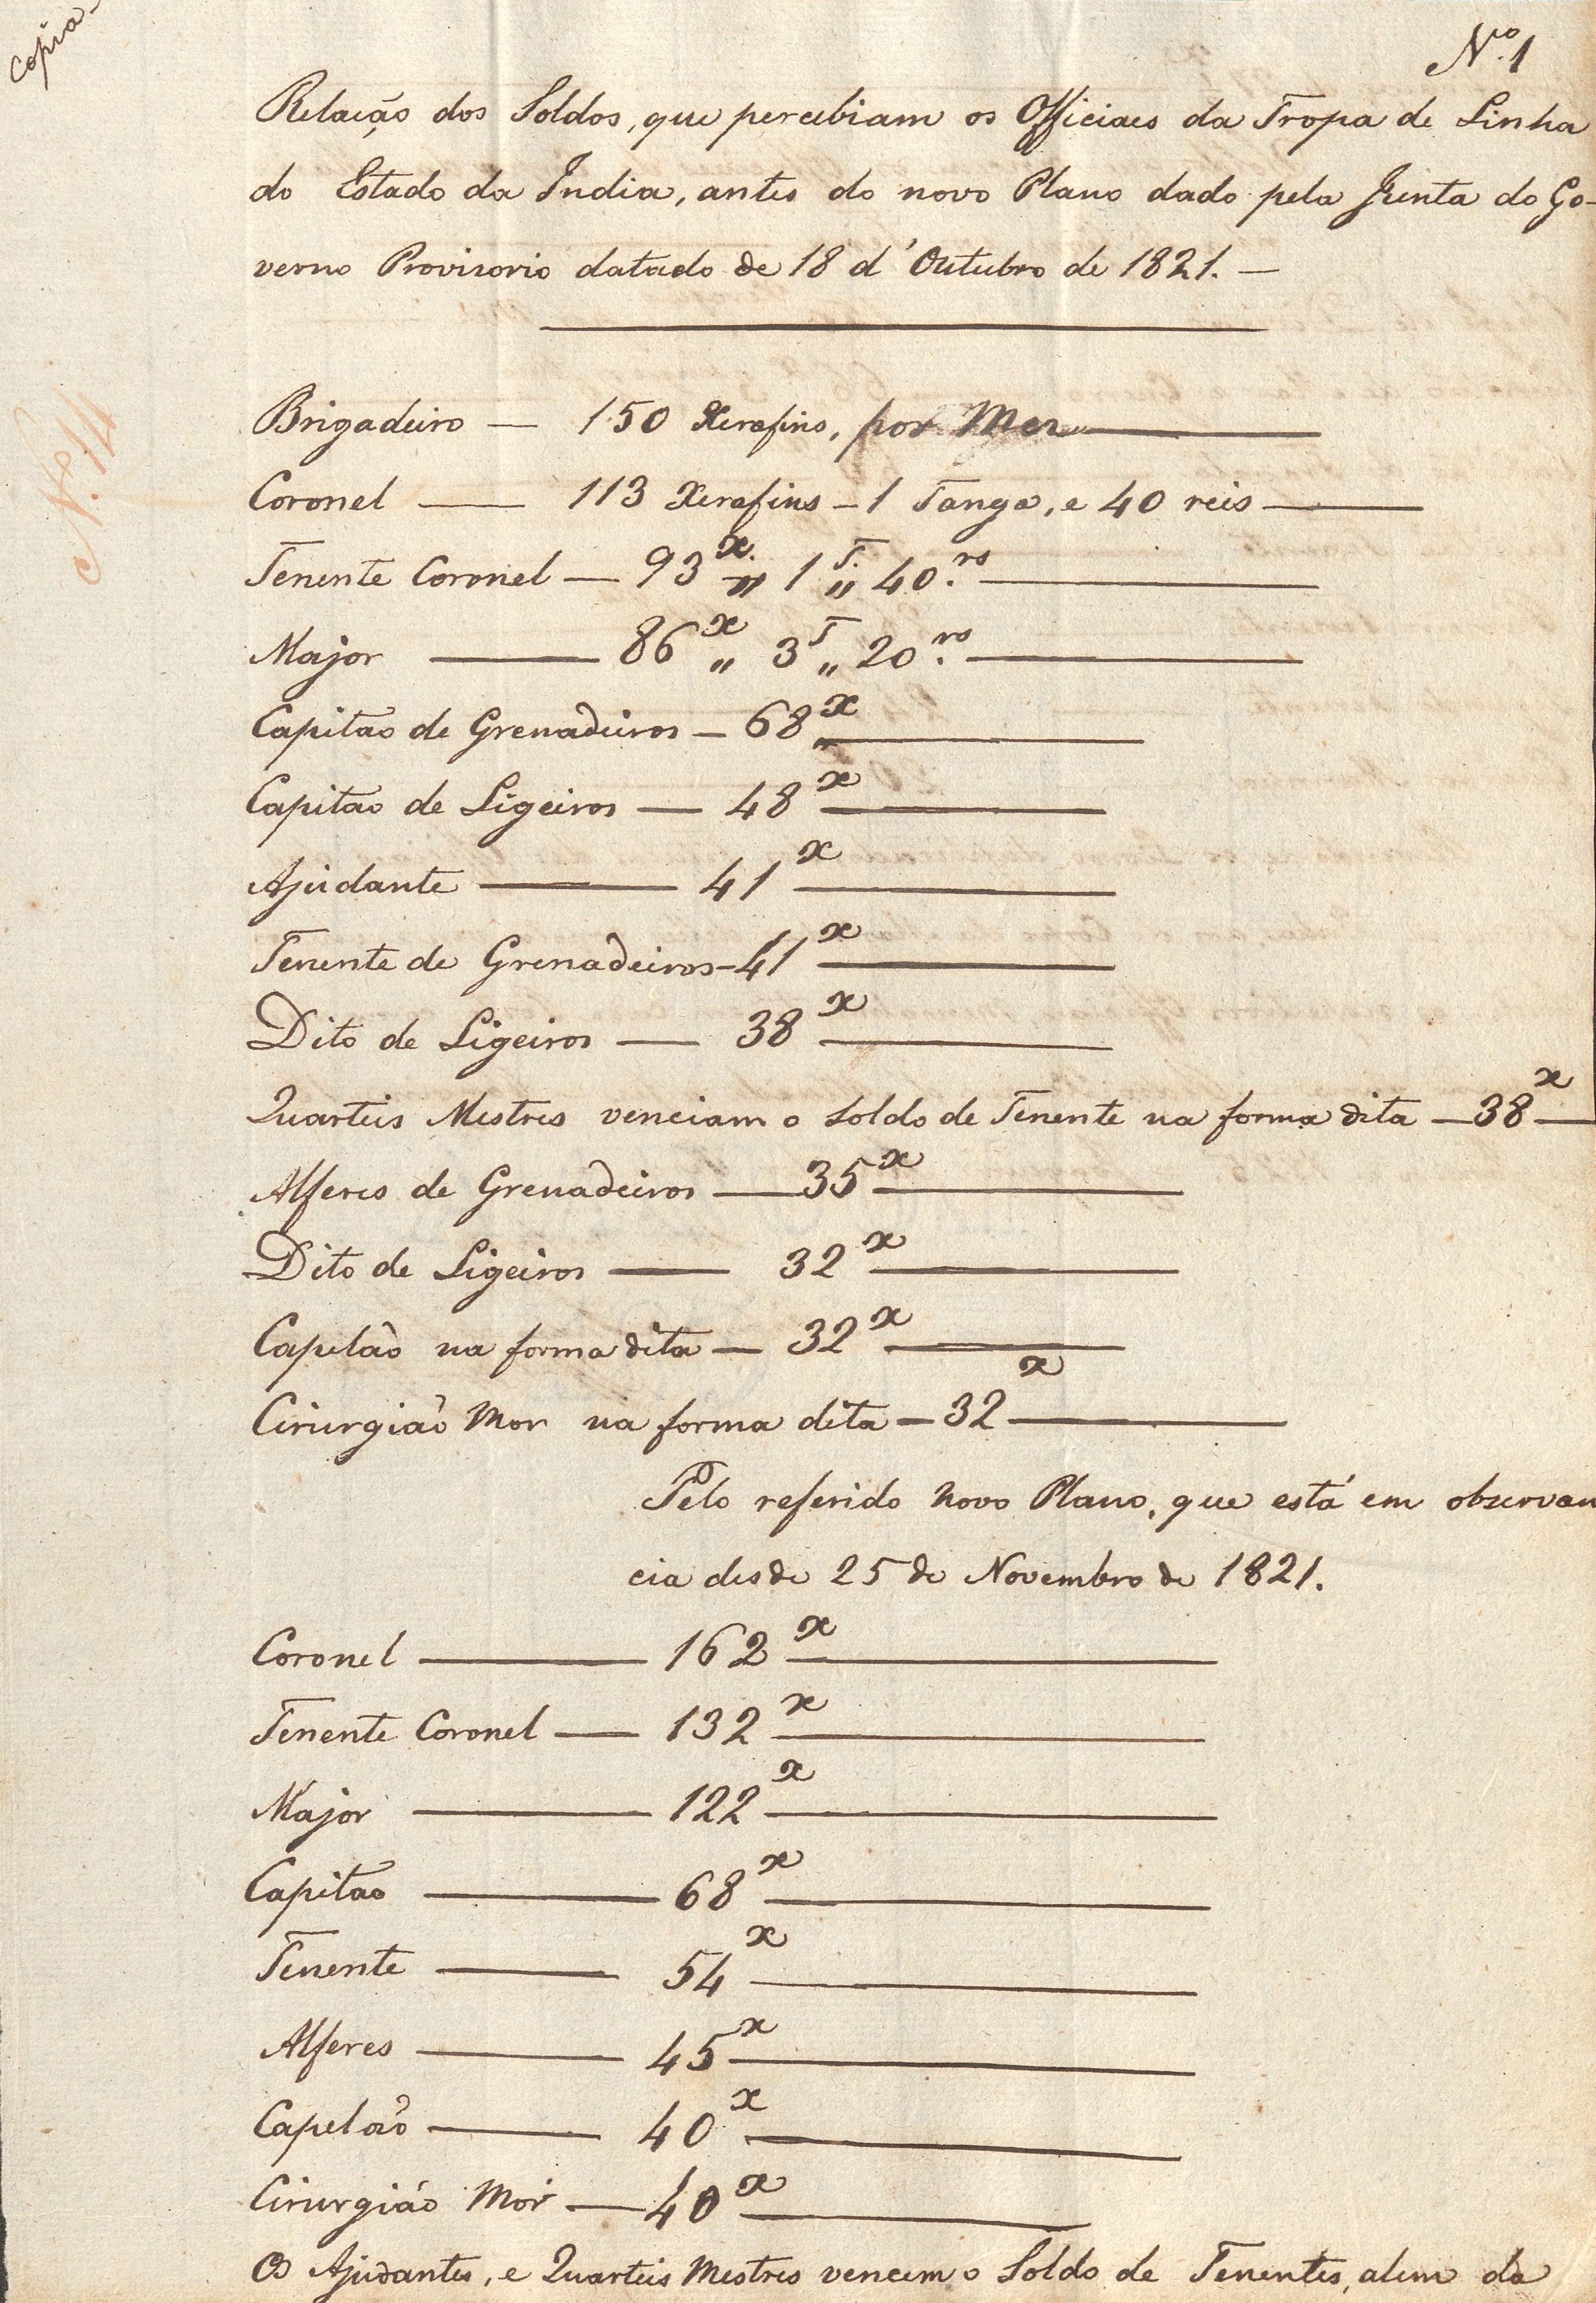 Copia
Nº 1
Relação dos Soldos, que percebiam os Officiaes da Tropa de Linha
do Estado da India, antes do novo Plano dado pela Junta do Go-
verno Provisorio datado de 18 d'Outubro de 1821. —
Nº 14
Brigadeiro — 150 Xerafins, por Mez
Coronel — 113 Xerafins – 1 Tanga, e 40 reis —
Tenente Coronel — 93 x. „ 1 T. „ 40 rs. —
Major — 86 x „ 3 T „ 20 rs. —
Capitao de Grenadeiros — 68 x „ —
Capitao de Ligeiros — 48 x —
Ajudante — 41 x —
Tenente de Grenadeiros – 41 x —
Dito de Ligeiros — 38 x —
Quarteis Mestres venciam o Soldo de Tenente na forma dita — 38 x —
Alferes de Grenadeiros — 35 x —
Dito de Ligeiros — 32 x —
Capelão na forma dita — 32 x —
Cirurgião Mor na forma dita — 32 x —
Pelo referido novo Plano, que está em observan
cia desde 25 de Novembro de 1821.
Coronel — 162 x —
Tenente Coronel — 132 x —
Major — 122 x —
Capitao — 68 x —
Tenente — 54 x —
Alferes — 45 x —
Capelão — 40 x —
Cirurgião Mór — 40 x —
Os Ajudantes, e Quarteis Mestres vencem o Soldo de Tenentes, alem da